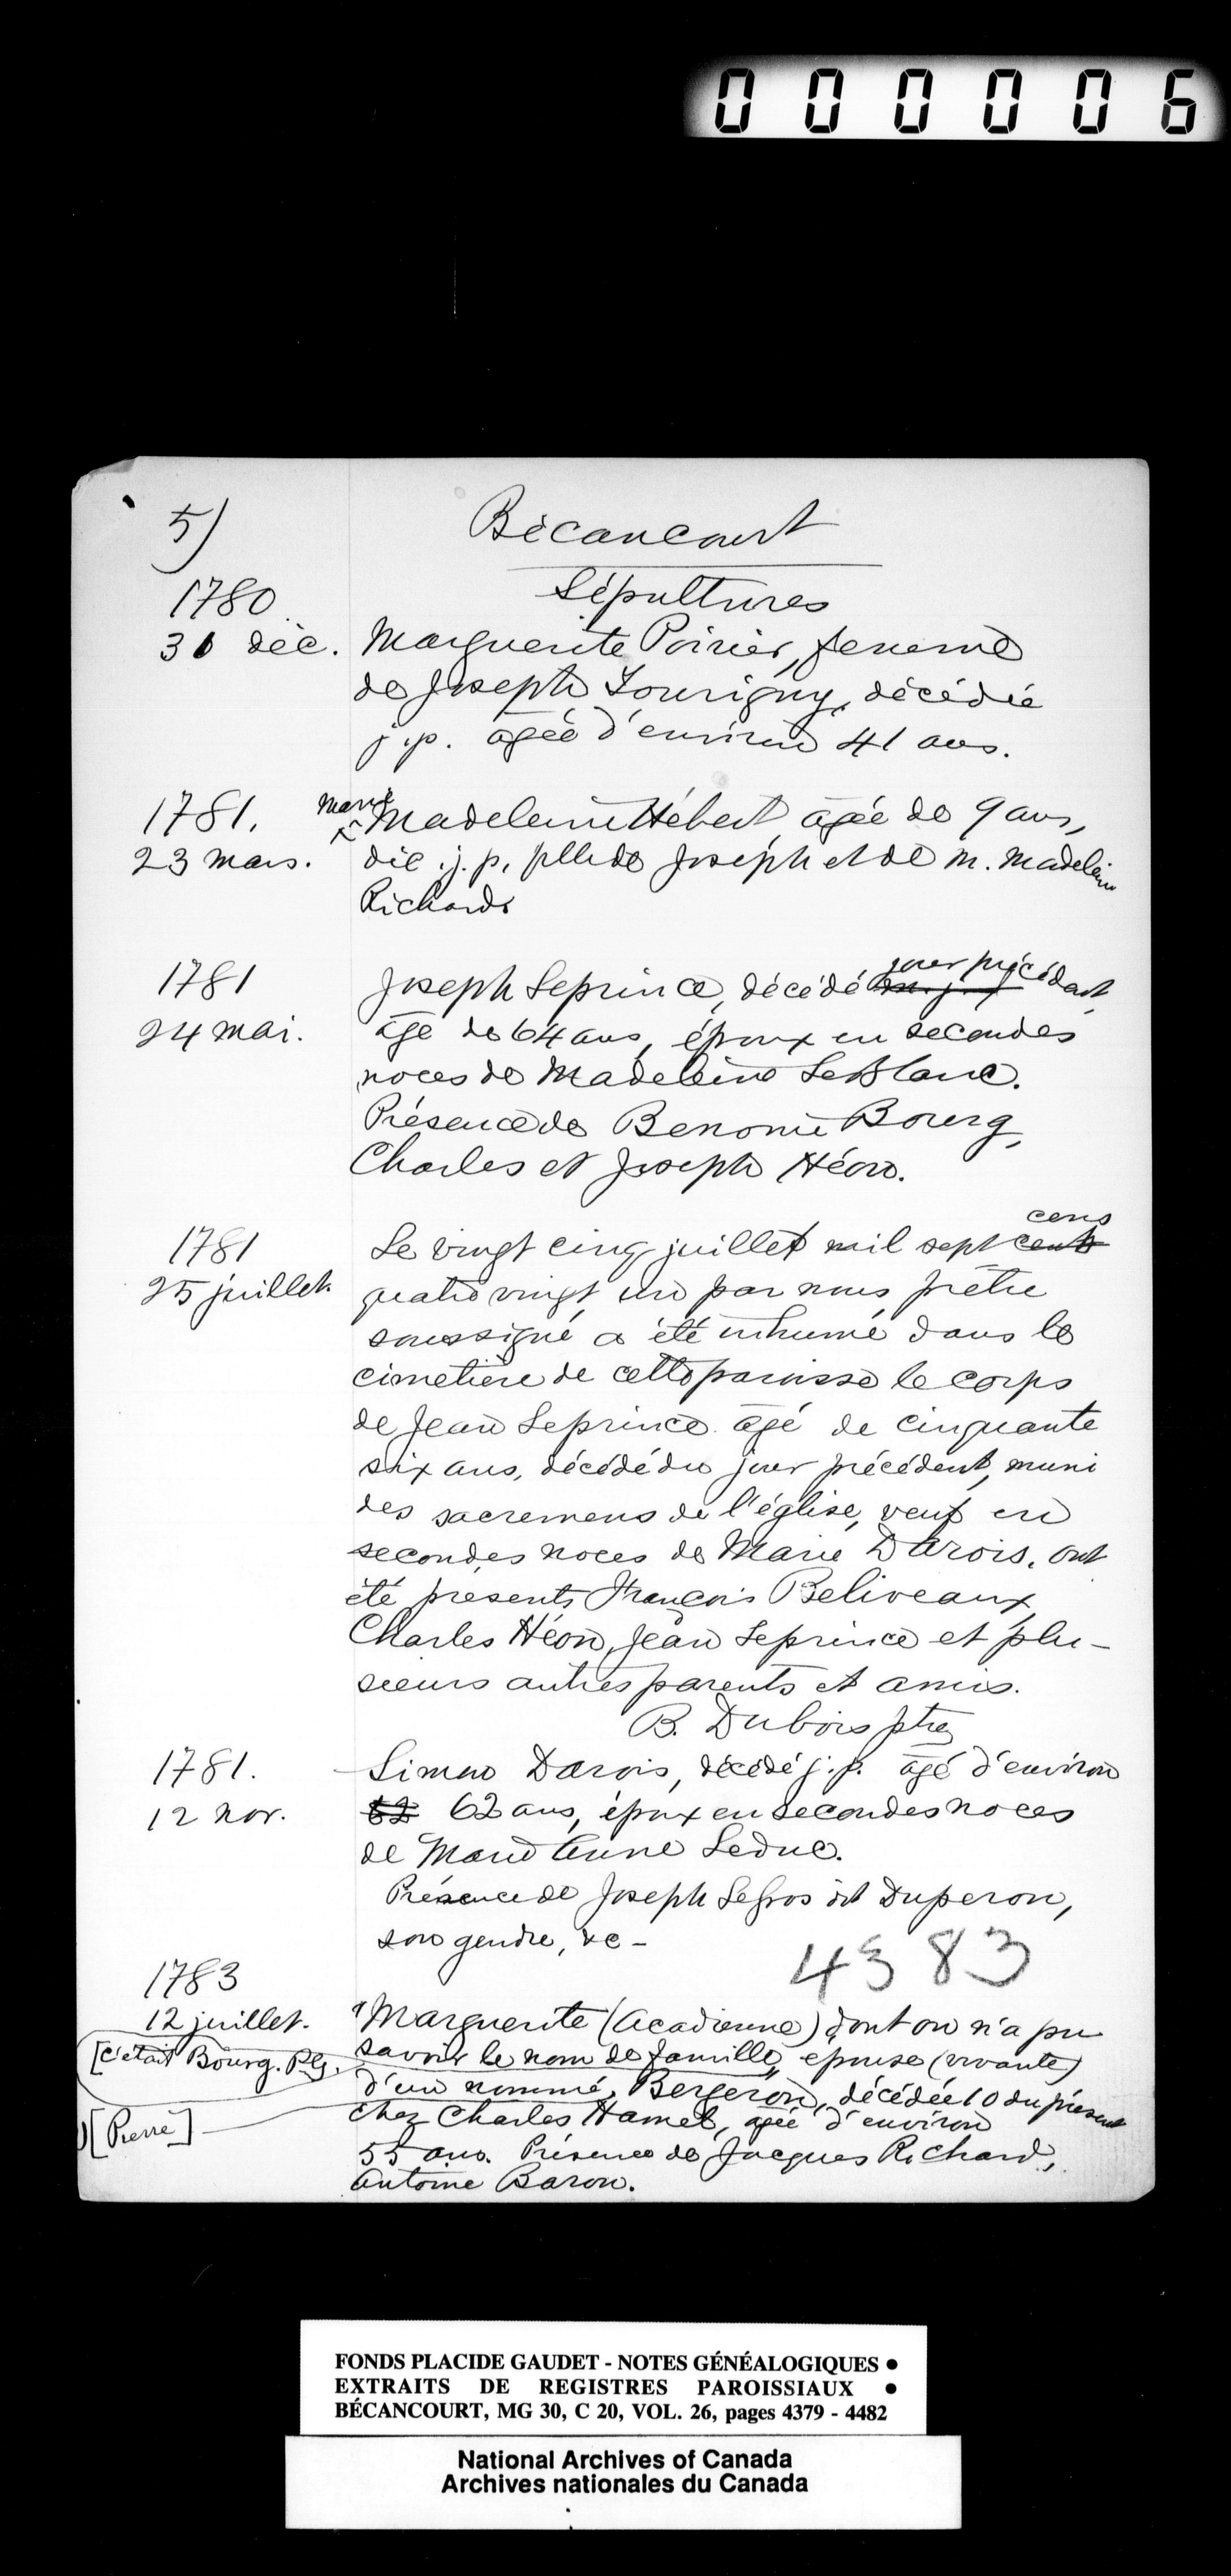 000006
5)
Bécancourt
Sépultures
1780
31 déc.
Marguerite Poirier, femme
de Joseph Tourigny, décédée
j.p. âgée d'environ 41 ans.
1781.
23 mars.
Marie
Madeleine Hébert, âgée de 9 ans,
déc. j. p. fille de Joseph et de M. Madeleine
Richard
1781
24 mai.
jour précédent,
Joseph Leprince, décédé
âgé de 64 ans, époux en secondes
noces de Madeleine LeBlanc.
Présence de Benonie Bourg,
Charles et Joseph Héon.
1781
25 juillet.
cens
Le vingt cinq juillet mil sept cents
quatre vingt un par nous prêtre
soussigné a été inhumé dans le
cimetière de cette paroisse le corps
de Jean Leprince âgé de cinquante
six ans, décédé du jour précédent, muni
des sacremens de l'église, veuf en
secondes noces de Marie Darois. Ont
été présents François Beliveaux,
Charles Héon, Jean Leprince et plu-
sieurs autres parents et amis.
B. Dubois ptre
1781.
12 nov.
Simon Darois, décédé j.p. âgé d'environ
52 62 ans, époux en secondes noces
de Marie Anne Leduc.
Présence de Joseph Legros dit Duperon,
son gendre, &c -
4383
1783
12 juillet.
[C'était Bourg. P.G.
[Pierre]
"Marguerite (Acadienne) dont on n'a pu
savoir le nom de famille, épouse (vivante)
d'un nommé Bergeron, décédée 10 du présent
chez Charles Hamel, âgée d'environ
55 ans. Présence de Jacques Richard,
Antoine Baron.
FONDS PLACIDE GAUDET - NOTES GÉNÉALOGIQUES •
EXTRAITS DE REGISTRES PAROISSIAUX •
BÉCANCOURT, MG 30, C 20, VOL. 26, pages 4379 - 4482
National Archives of Canada
Archives nationales du Canada